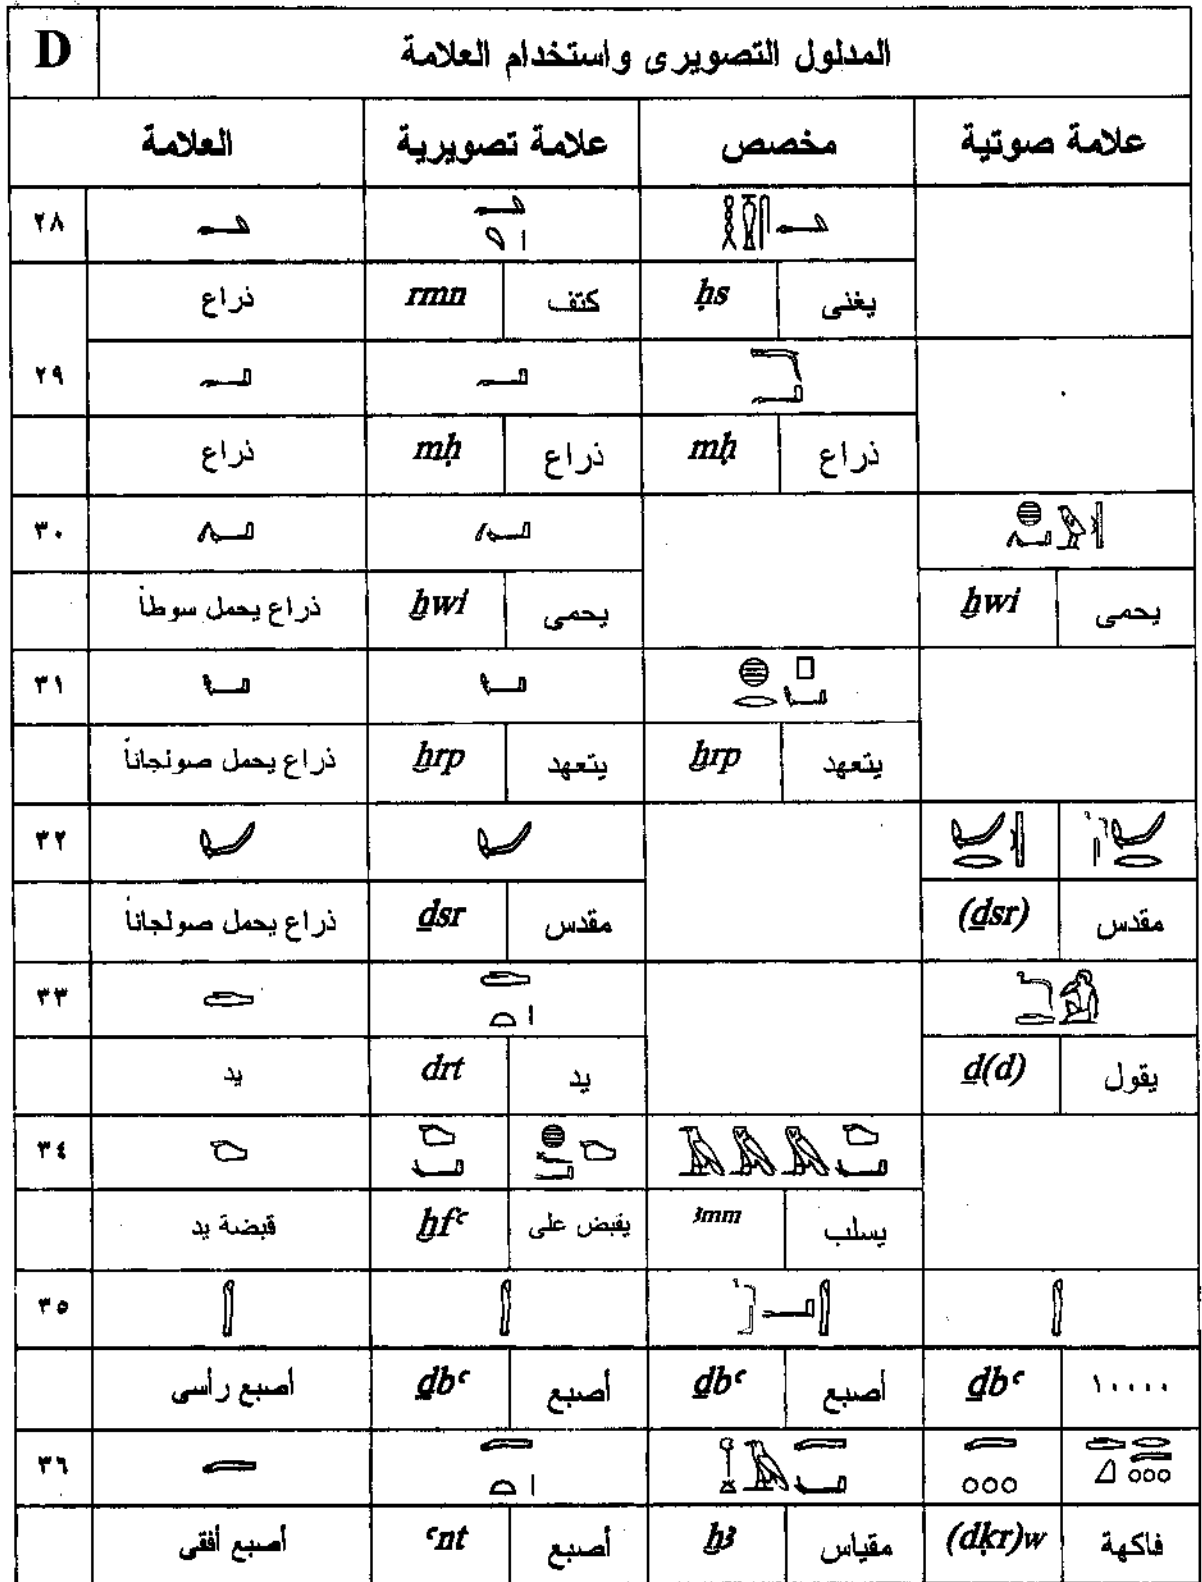 D المدلول التصويرى واستخدام العلامة
العلامة علامة تصويرية مخصص علامة صوتية
٢٨
ذراع rmn كتف ḥs يغنى
٢٩
ذراع mḥ ذراع mḥ ذراع
٣٠
ذراع يحمل سوطاً ḫwi يحمى ḫwi يحمى
٣١
ذراع يحمل صولجاناً ḫrp يتعهد ḫrp يتعهد
٣٢
ذراع يحمل صولجاناً ḏsr مقدس (ḏsr) مقدس
٣٣
يد drt يد ḏ(d) يقول
٣٤
قبضة يد ḫfꜥ يقبض على ꜣmm يسلب
٣٥
أصبع رأسى ḏbꜥ أصبع ḏbꜥ أصبع ḏbꜥ ١٠٠٠٠
٣٦
أصبع أفقى ꜥnt أصبع ḫꜣ مقياس (dḳr)w فاكهة